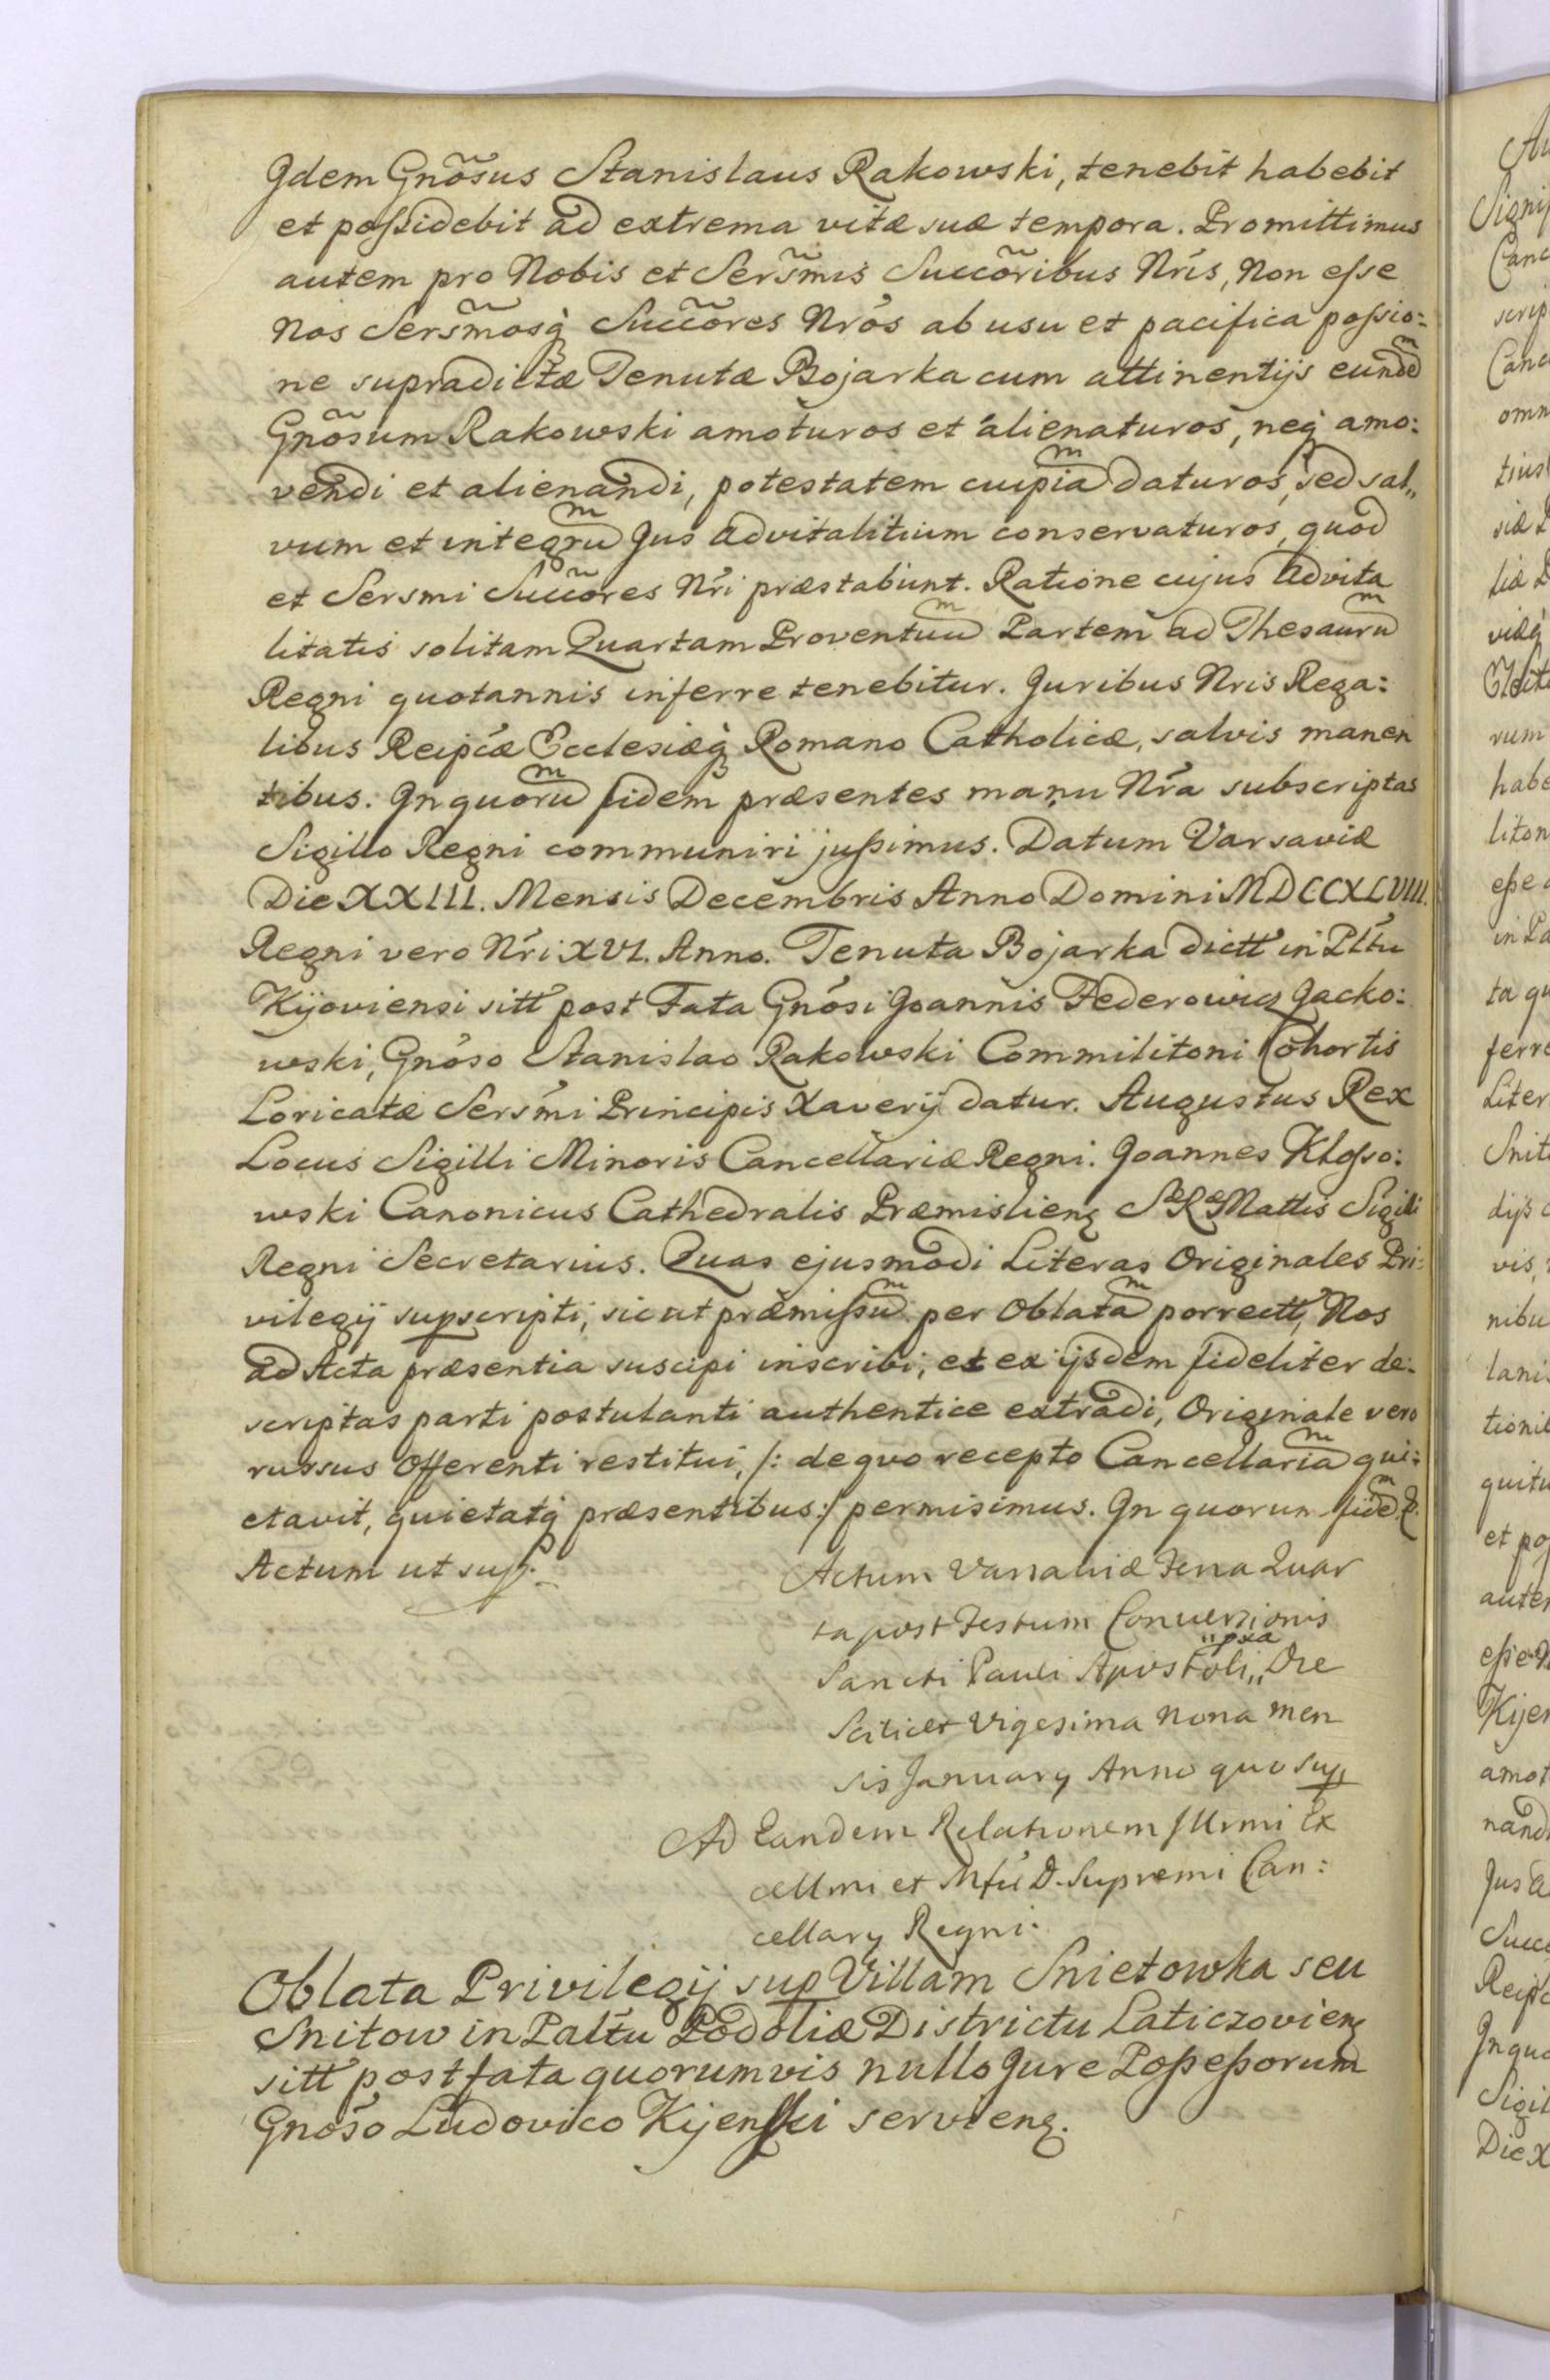 Jdem Gnõsus Stanislaus Rakowski, tenebit habebit
et possidebit ad extrema vitæ suæ tempora. Promittimus
autem pro Nobis et Sers̃mis Succõribus Nris, Non esse
Nos Sers̃mosq̀ Succõres Nros ab usu et pacifica possio:
ne supradictæ Tenutæ Bojarka cum attinentijs eundẽ
Gnõsum Rakowski amoturos et alienaturos, neq̀ amo:
vendi et alienandi, potestatem cuipiã daturos, sed sal„
vum et integrũ Jus advitalitium conservaturos, quod
et Sersmi Succõres Nri præstabunt. Ratione cujus advita
litatis solitam Quartam Proventuũ Partem ad Thesaurũ
Regni quotannis inferre tenebitur. Juribus Nris Rega:
libus Reipcæ Ecclesiæq̀ Romano Catholicæ, salvis manen
tibus. Jn quorũ fidem præsentes manu Nra subscriptas
Sigillo Regni communiri jussimus. Datum Varsaviæ
Die XXIII. Mensis Decembris Anno Domini MDCCXLVIII.
Regni vero Nri XVI. Anno. Tenuta Bojarka dictt in Plttu
Kijoviensi sitt post Fata Gnosi Joannis Federowicz Jacko:
wski, Gnoso Stanislao Rakowski Commilitoni Cohortis
Loricatæ Sersmi Principis Xaverij datur. Augustus Rex
Locus Sigilli Minoris Cancellariæ Regni. Joannes Kłosso:
wski Canonicus Cathedralis Præmislienz SæRæ Mattis Sigilli
Regni Secretarius. Quas ejusmodi Literas Originales Pri:
vilegij supscripti, sicut præmissũ per Oblatã porrectt, Nos
ad Acta præsentia suscipi inscribi, et ex ijsdem fideliter de:
scriptas parti postulanti authentice extradi, Originale vero
rursus Offerenti restitui, /: de quo recepto Cancellariã qui:
etavit, quietatq̀ præsentibus :/ permisimus. Jn quorum fidẽ &.
Actum ut sup.
Actum Varsaviæ Feria Quar
ta post Festum Conversionis
pxa
Sancti Pauli Apostoli„ Die
Scilicet Vigesima Nona Men
sis January Anno quo Sup
Ad Eandem Relationem Illrmi Ex
cellmi et Mfci D. Supremi Can:
cellary Regni.
Oblata Privilegij sup Villam Snietowka seu
Snitow in Paltu Podoliæ Districtu Laticzovienz
sitt post fata quorumvis nullo Jure Possessorum
Gnoso Ludovico Kijenski servienz.